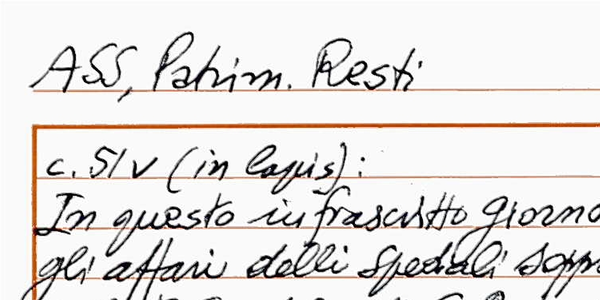 ASS, Patrim. Resti
c. 51v (in lapis):
In questo infrascritto giorno
gli affari delli spedali